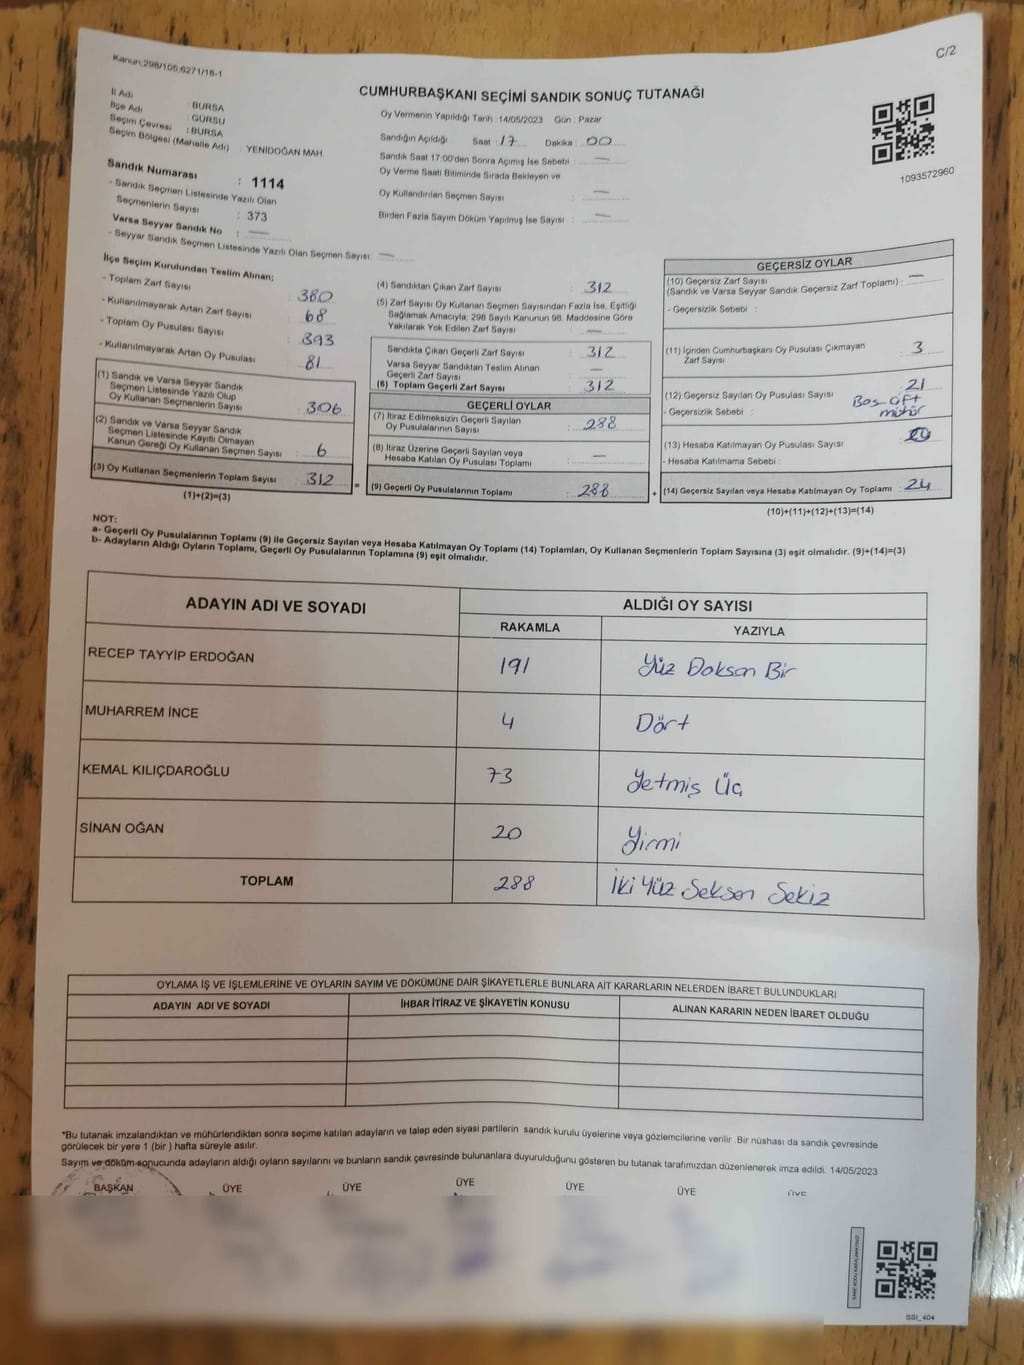 Kanun:298/105,6271/18-1
C/2
CUMHURBAŞKANI SEÇİMİ SANDIK SONUÇ TUTANAĞI
İl Adı : BURSA
İlçe Adı : GÜRSU
Seçim Çevresi : BURSA
Seçim Bölgesi (Mahalle Adı) : YENİDOĞAN MAH.
Sandık Numarası : 1114
- Sandık Seçmen Listesinde Yazılı Olan
Seçmenlerin Sayısı : 373
Varsa Seyyar Sandık No : —
- Seyyar Sandık Seçmen Listesinde Yazılı Olan Seçmen Sayısı: —
Oy Vermenin Yapıldığı Tarih :14/05/2023 Gün : Pazar
Sandığın Açıldığı Saat : 17 Dakika : 00
Sandık Saat 17:00'den Sonra Açımış İse Sebebi : —
Oy Verme Saati Bitiminde Sırada Bekleyen ve
Oy Kullandırılan Seçmen Sayısı : —
Birden Fazla Sayım Döküm Yapılmış İse Sayısı : —
1093572960
İlçe Seçim Kurulundan Teslim Alınan;
- Toplam Zarf Sayısı : 380
- Kullanılmayarak Artan Zarf Sayısı : 68
- Toplam Oy Pusulası Sayısı : 393
- Kullanılmayarak Artan Oy Pusulası : 81
(1) Sandık ve Varsa Seyyar Sandık
Seçmen Listesinde Yazılı Olup
Oy Kullanan Seçmenlerin Sayısı : 306
(2) Sandık ve Varsa Seyyar Sandık
Seçmen Listesinde Kayıtlı Olmayan
Kanun Gereği Oy Kullanan Seçmen Sayısı : 6
(3) Oy Kullanan Seçmenlerin Toplam Sayısı : 312
(1)+(2)=(3)
(4) Sandıktan Çıkan Zarf Sayısı : 312
(5) Zarf Sayısı Oy Kullanan Seçmen Sayısından Fazla İse, Eşitliği
Sağlamak Amacıyla; 298 Sayılı Kanunun 98. Maddesine Göre
Yakılarak Yok Edilen Zarf Sayısı : —
Sandıkta Çıkan Geçerli Zarf Sayısı : 312
Varsa Seyyar Sandıktan Teslim Alınan
Geçerli Zarf Sayısı : —
(6) Toplam Geçerli Zarf Sayısı : 312
GEÇERLİ OYLAR
(7) İtiraz Edilmeksizin Geçerli Sayılan
Oy Pusulalarının Sayısı : 288
(8) İtiraz Üzerine Geçerli Sayılan veya
Hesaba Katılan Oy Pusulası Toplamı : —
= (9) Geçerli Oy Pusulalarının Toplamı : 288 +
GEÇERSİZ OYLAR
(10) Geçersiz Zarf Sayısı : —
(Sandık ve Varsa Seyyar Sandık Geçersiz Zarf Toplamı)
- Geçersizlik Sebebi :
(11) İçinden Cumhurbaşkanı Oy Pusulası Çıkmayan
Zarf Sayısı : 3
(12) Geçersiz Sayılan Oy Pusulası Sayısı : 21
- Geçersizlik Sebebi : Boş çift
mühür
(13) Hesaba Katılmayan Oy Pusulası Sayısı :
- Hesaba Katılmama Sebebi :
(14) Geçersiz Sayılan veya Hesaba Katılmayan Oy Toplamı : 24
(10)+(11)+(12)+(13)=(14)
NOT:
a- Geçerli Oy Pusulalarının Toplamı (9) ile Geçersiz Sayılan veya Hesaba Katılmayan Oy Toplamı (14) Toplamları, Oy Kullanan Seçmenlerin Toplam Sayısına (3) eşit olmalıdır. (9)+(14)=(3)
b- Adayların Aldığı Oyların Toplamı, Geçerli Oy Pusulalarının Toplamına (9) eşit olmalıdır.
ADAYIN ADI VE SOYADI ALDIĞI OY SAYISI
RAKAMLA YAZIYLA
RECEP TAYYİP ERDOĞAN 191 Yüz Doksan Bir
MUHARREM İNCE 4 Dört
KEMAL KILIÇDAROĞLU 73 Yetmiş Üç
SİNAN OĞAN 20 Yirmi
TOPLAM 288 İki Yüz Seksen Sekiz
OYLAMA İŞ VE İŞLEMLERİNE VE OYLARIN SAYIM VE DÖKÜMÜNE DAİR ŞİKAYETLERLE BUNLARA AİT KARARLARIN NELERDEN İBARET BULUNDUKLARI
ADAYIN ADI VE SOYADI İHBAR İTİRAZ VE ŞİKAYETİN KONUSU ALINAN KARARIN NEDEN İBARET OLDUĞU
*Bu tutanak imzalandıktan ve mühürlendikten sonra seçime katılan adayların ve talep eden siyasi partilerin sandık kurulu üyelerine veya gözlemcilerine verilir .Bir nüshası da sandık çevresinde
görülecek bir yere 1 (bir ) hafta süreyle asılır.
Sayım ve döküm sonucunda adayların aldığı oyların sayılarını ve bunların sandık çevresinde bulunanlara duyurulduğunu gösteren bu tutanak tarafımızdan düzenlenerek imza edildi. 14/05/2023
BAŞKAN ÜYE ÜYE ÜYE ÜYE ÜYE ÜYE
SSI_404